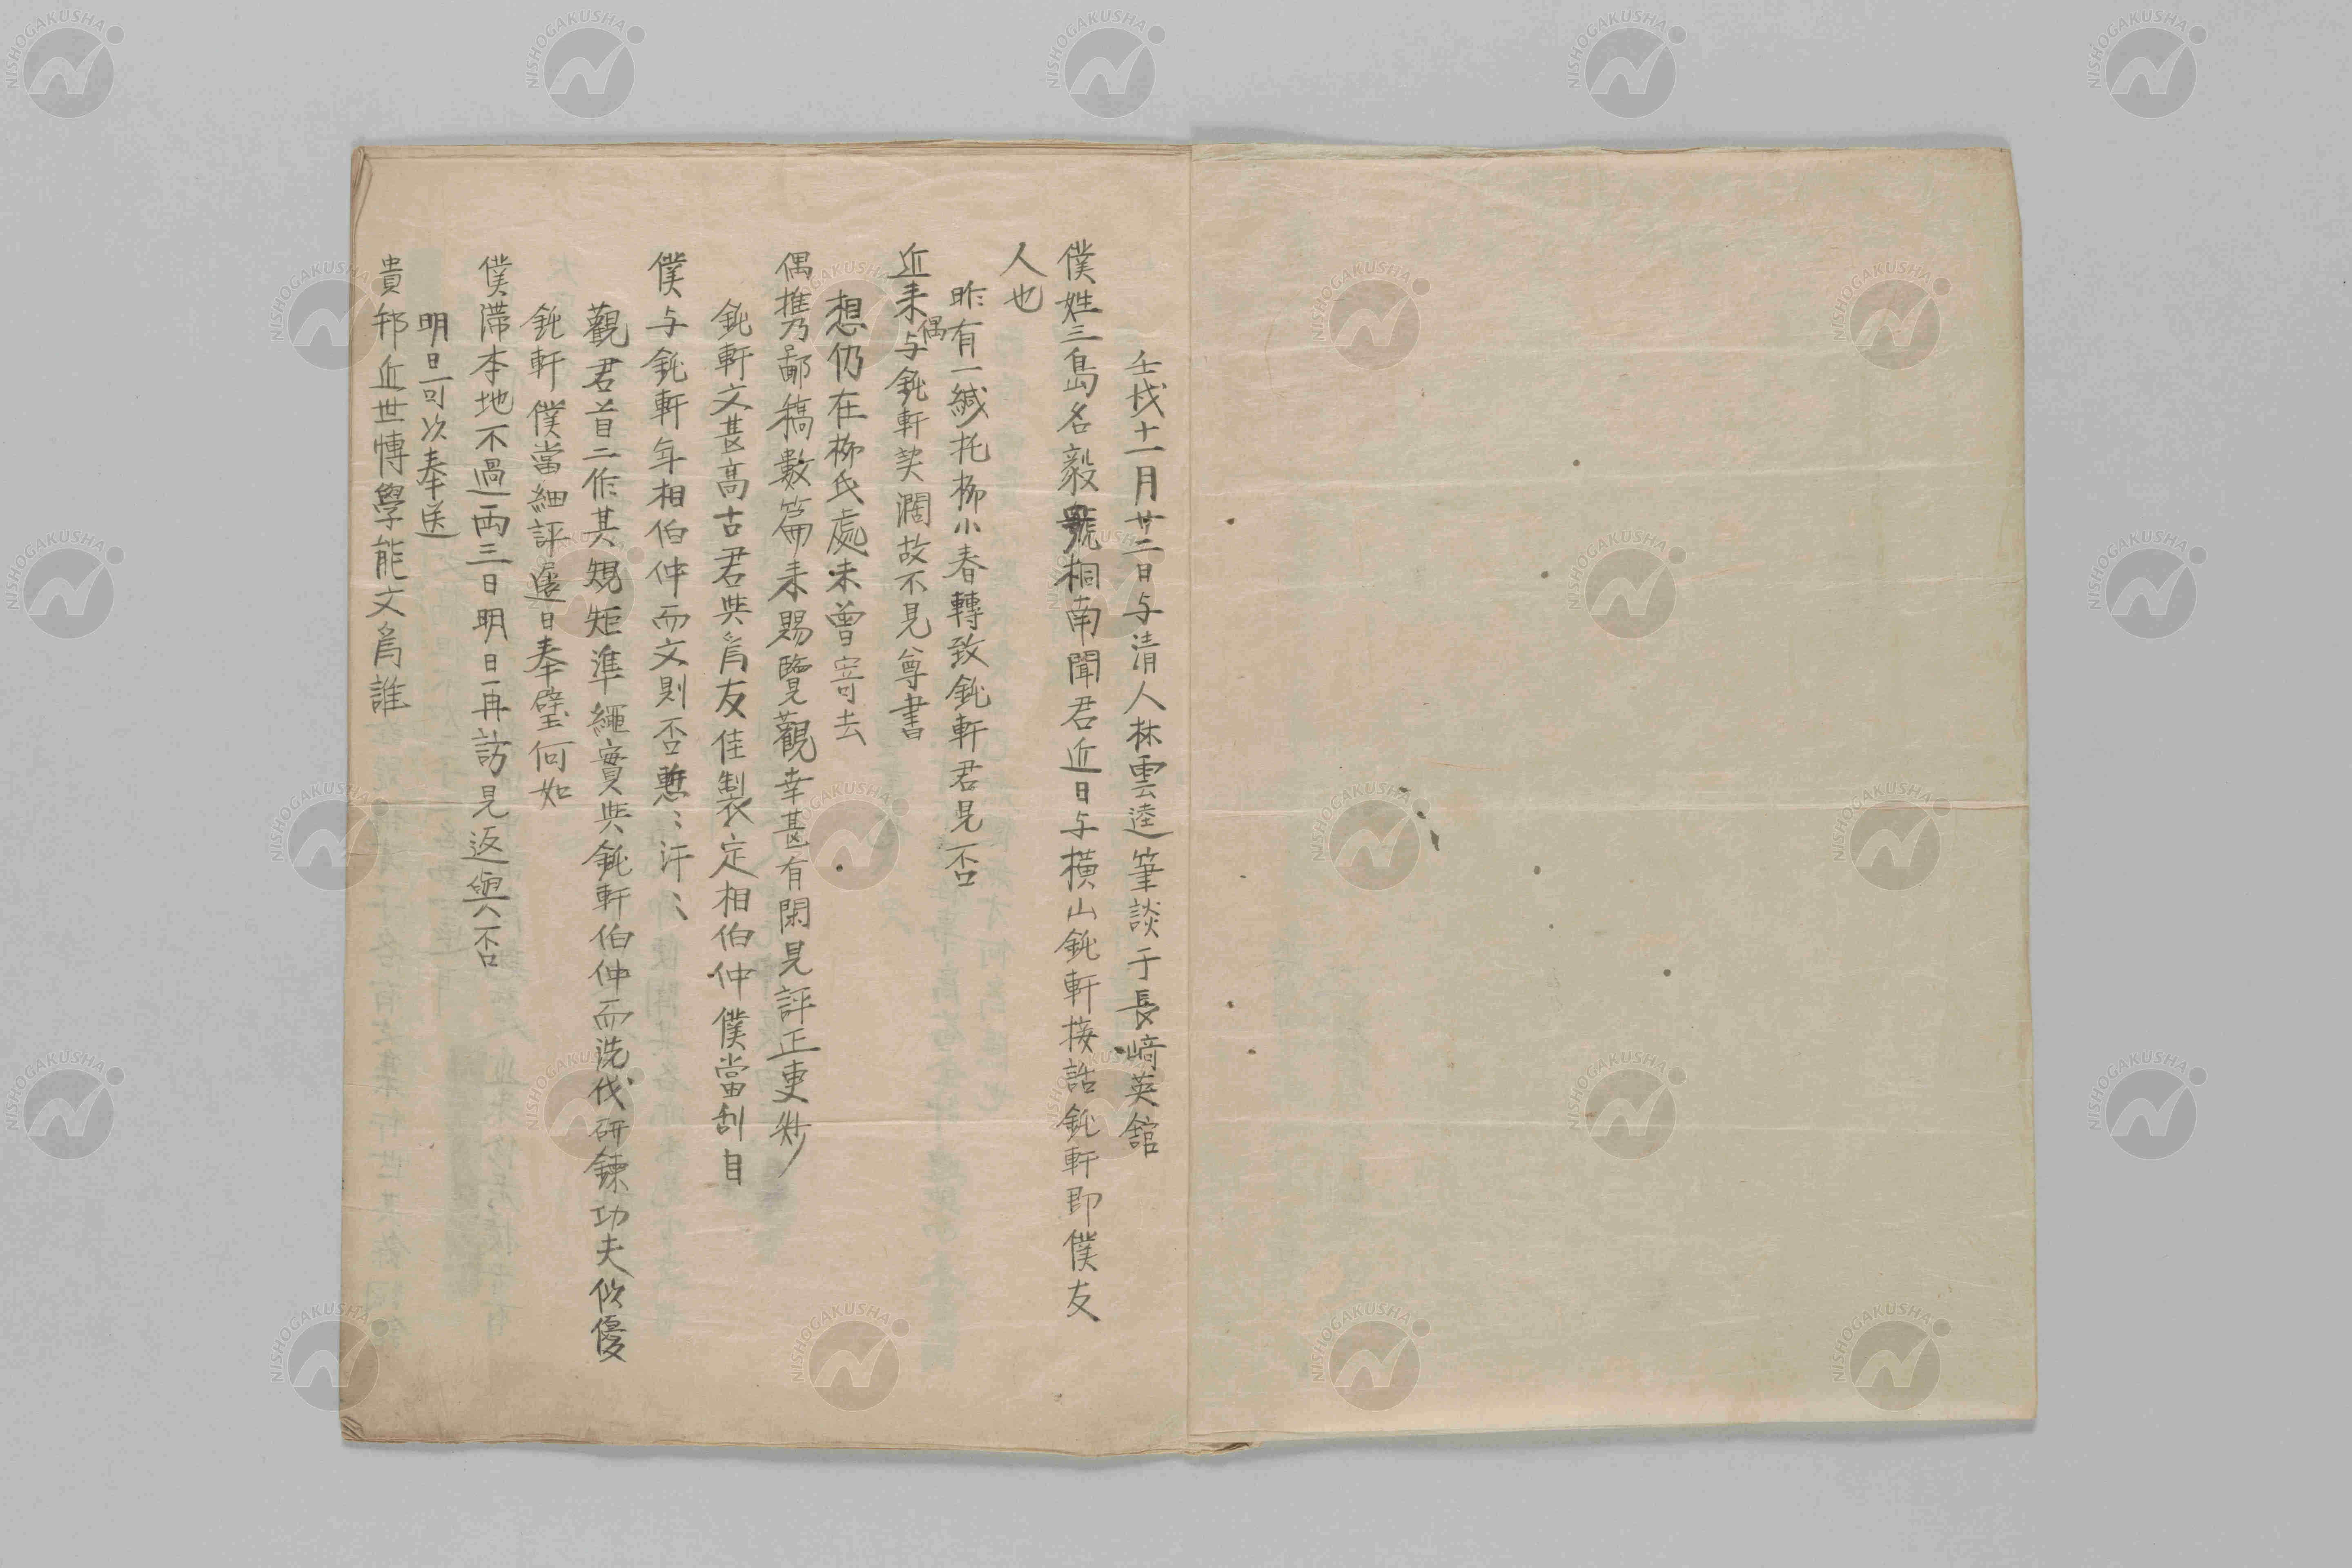 壬戌十一月廿二日与清人林雲逵筆談于長﨑英舘
僕姓三島名毅號桐南聞君近日与横山鈍軒接話鈍軒即僕友
人也
昨有一緘托柳小春轉致鈍軒君見否
近来偶与鈍軒契濶故不見尊書
想仍在柳氏處未曾寄去
偶携鄙稿數篇来賜覽觀幸甚有閑見評正更妙
鈍軒文甚高古君與爲友佳製定相伯仲僕當刮目
僕与鈍軒年相伯仲而文則否慙〻汗〻
觀君首二作其規矩準繩實與鈍軒伯仲而洗伐研鍊功夫似優
鈍軒僕當細評遲日奉璧何如
僕滞本地不過両三日明日再訪見返與否
明日可以奉送
貴邦近世博學能文爲誰
NISHOGAKUSHA